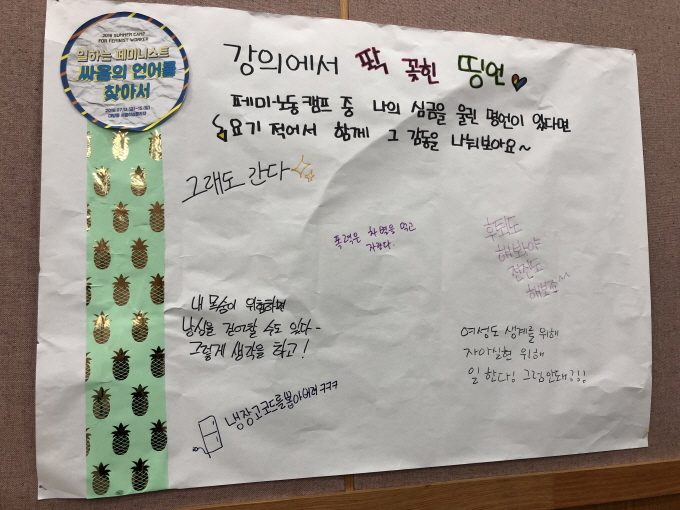 2018 SUMMER CAMP
FOR FEMINIST WORKER
일하는 페미니스트
싸움의 언어를
찾아서
강의에서 딱 꽂힌 띵언
페미노동캠프 중 나의 심금을 울린 명언이 있다면
요기 적어서 함께 그 감동을 나눠보아요~
그래도 간다
폭력은 차별을 먹고
자란다
후퇴도
해봐야
전진도
내 목숨이 위험하면
남성을
그렇게 생각을 하고!
여성도 생계를 위해
자아실현 위해
일 한다! 그럼안돼
냉장고코드를뽑아버려 ㅋㅋㅋ